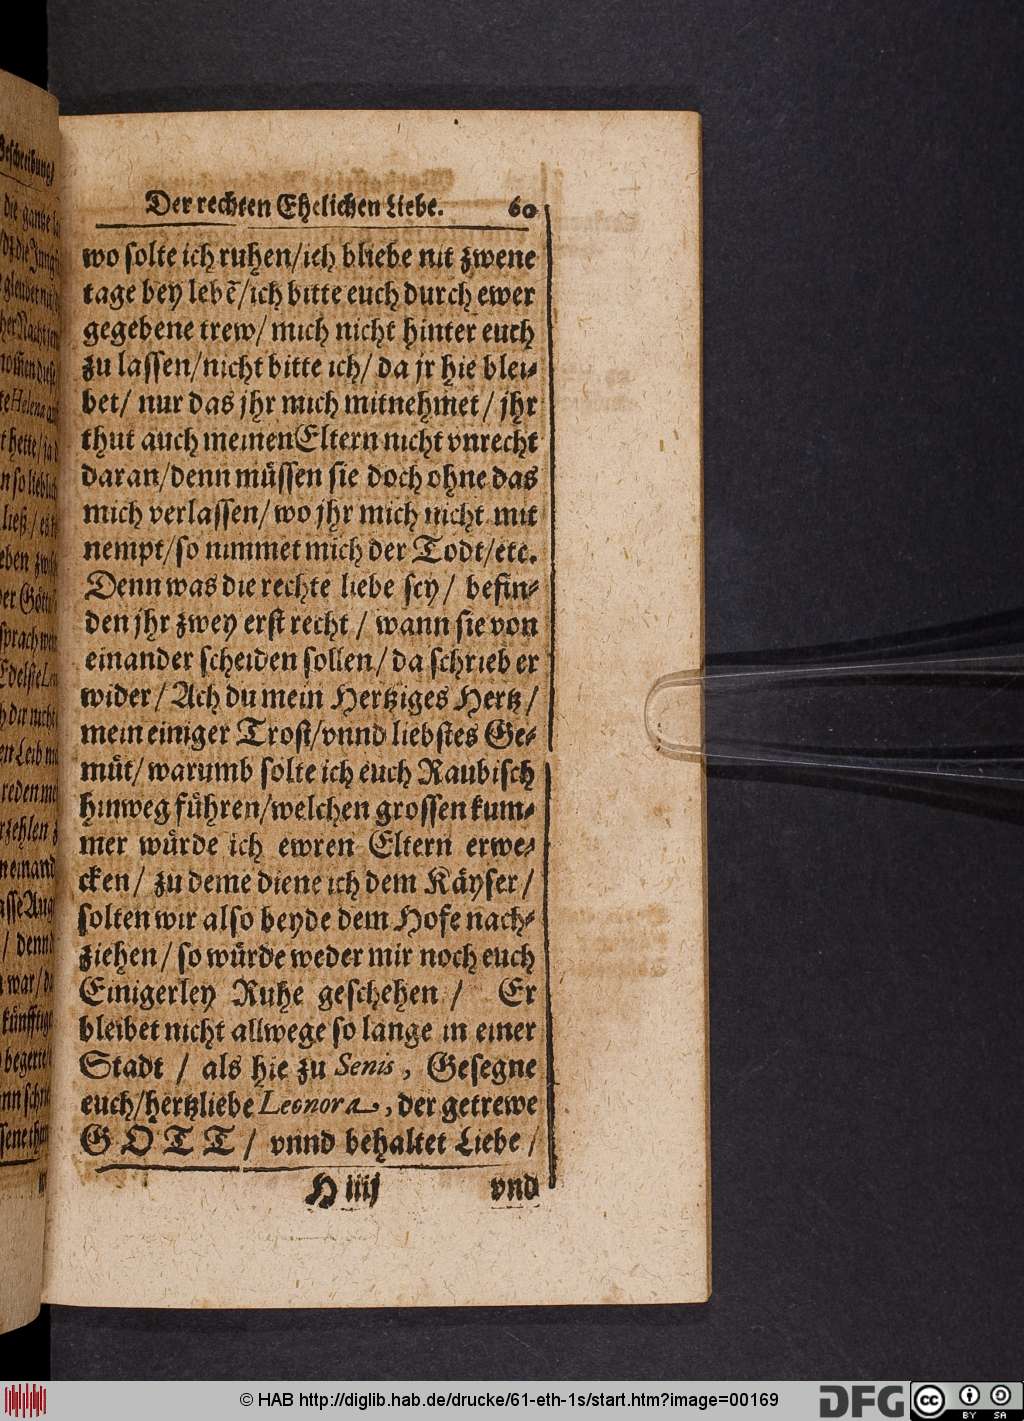 Der rechten Ehelichen Liebe. 60
wo solte ich ruhen/ich bliebe nit zwene
tage bey lebē/ich bitte euch durch ewer
gegebene trew/ mich nicht hinter euch
zu lassen/nicht bitte ich/ da jr hie blei-
bet/ nur das jhr mich mitnehmet/ jhr
thut auch meinen Eltern nicht vnrecht
daran/denn müssen sie doch ohne das
mich verlassen/wo jhr mich nicht mit
nempt/so nimmet mich der Todt/etc.
Denn was die rechte liebe sey/ befin-
den jhr zwey erst recht/ wann sie von
einander scheiden sollen/ da schrieb er
wider/ Ach du mein Hertziges Hertz/
mein einiger Trost/vnnd liebstes Ge-
müt/ warumb solte ich euch Raubisch
hinweg führen/welchen grossen kum-
mer würde ich ewren Eltern erwe-
cken/ zu deme diene ich dem Käyser/
solten wir also beyde dem Hofe nach-
ziehen/ so würde weder mir noch euch
Einigerley Ruhe geschehen/ Er
bleibet nicht allwege so lange in einer
Stadt/ als hie zu Senis, Gesegne
euch/hertzliebe Leonora, der getrewe
GOTT/ vnnd behaltet Liebe/
H iiij vnd
© HAB http://diglib.hab.de/drucke/61-eth-1s/start.htm?image=00169
DFG
cc BY SA